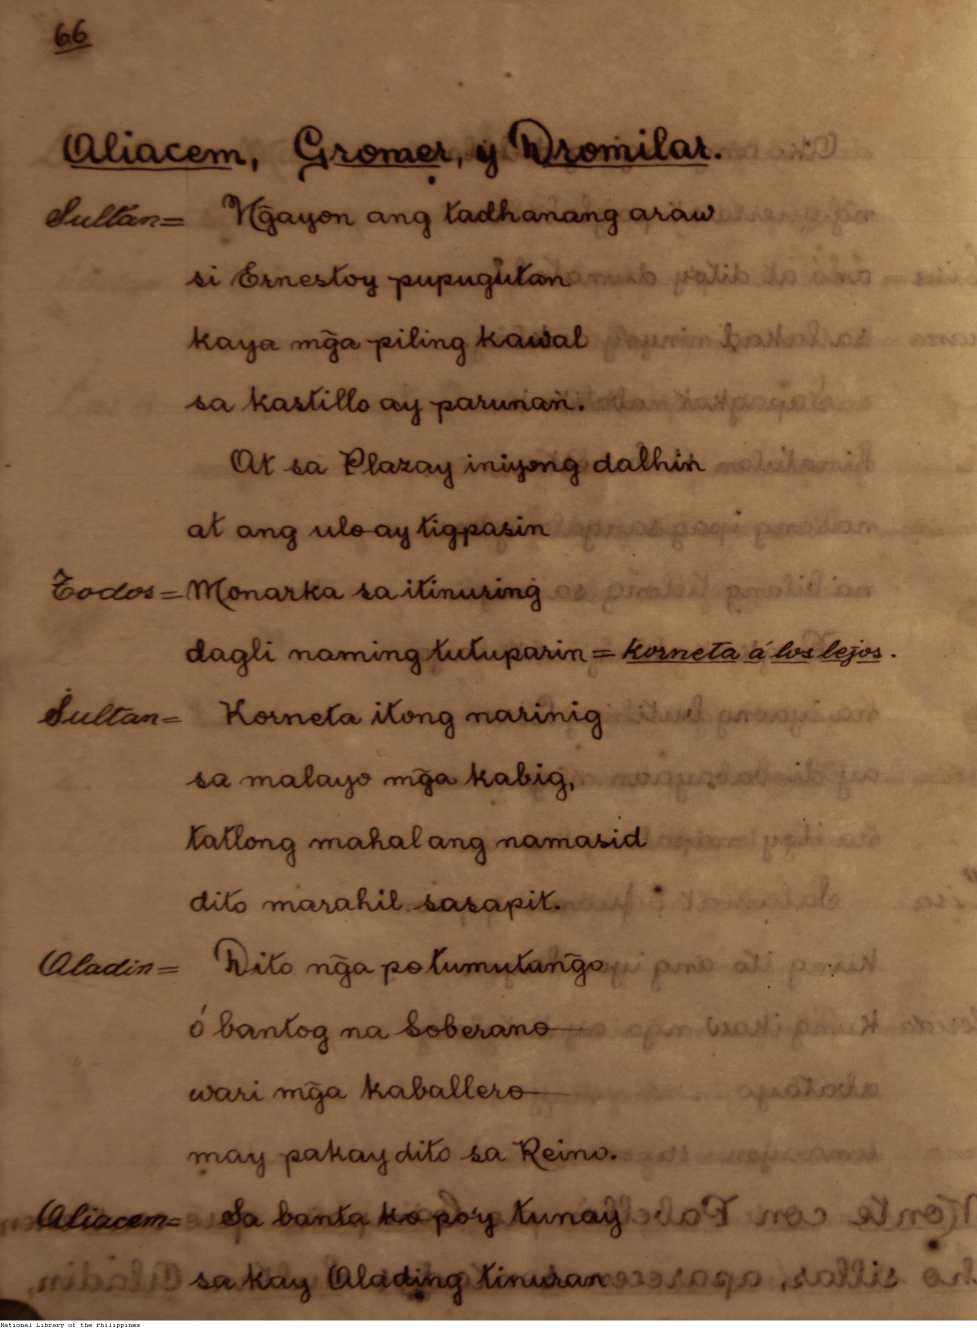 66
Aliacem, Gromer, y Dromilar.
Sultan= Ñgayon ang tadhanang araw
si Ernestoy pupugutan
kaya mg̃a piling kawal
sa kastillo ay parunan.
At sa Plazay iniyong dalhin
at ang ulo ay tigpasin
Todos= Monarka sa itinuring
dagli naming tutuparin = korneta á los lejos.
Sultan= Korneta itong narinig
sa malayo mg̃a kabig,
tatlong mahal ang namasid
dito marahil sasapit.
Aladin= Dito ng̃a po tumutung̃o
ó bantog na Soberano
wari mg̃a kaballero
may pakay dito sa Reino.
Aliacem= Sa banta ko po'y tunay
sa kay Alading tinuran
National Library of the Philippines